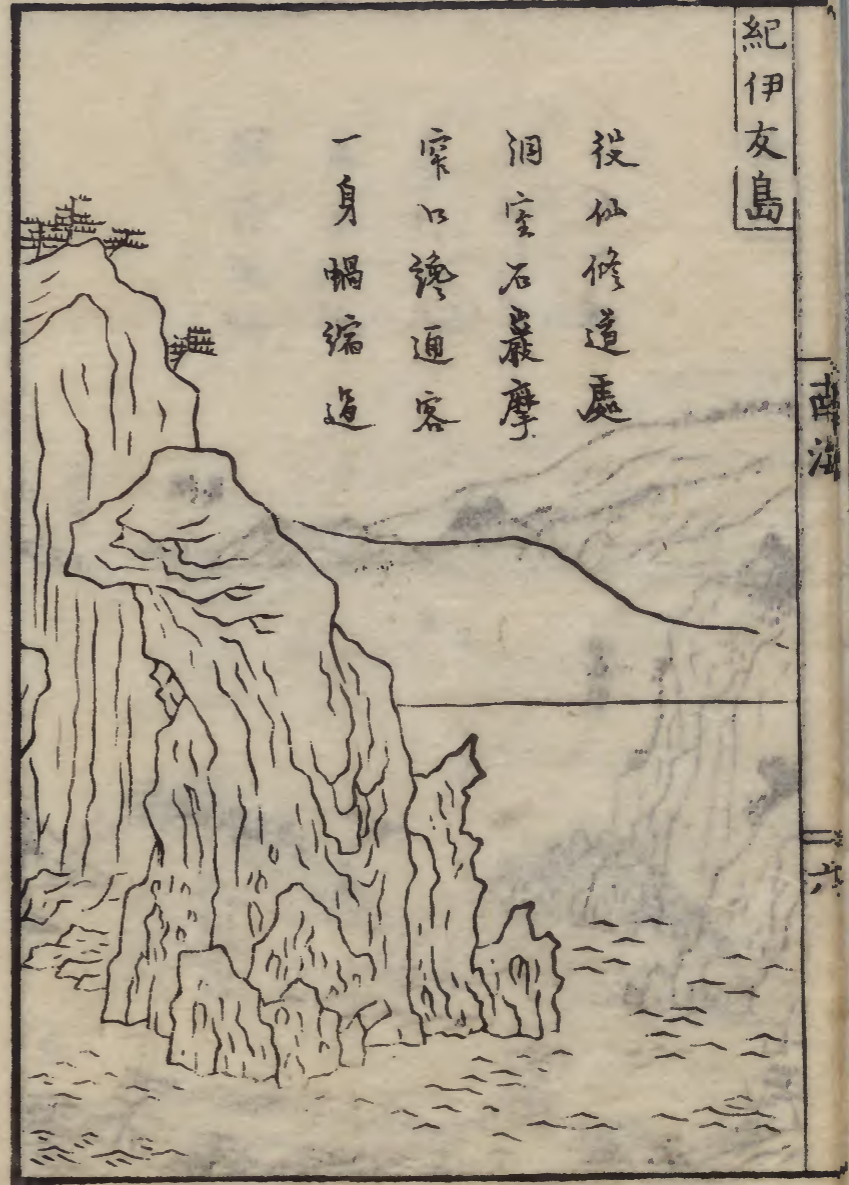 紀伊友島
役仙修道處
洞室石巖摩
窄口纔通客
一身蝸縮過
南海
六